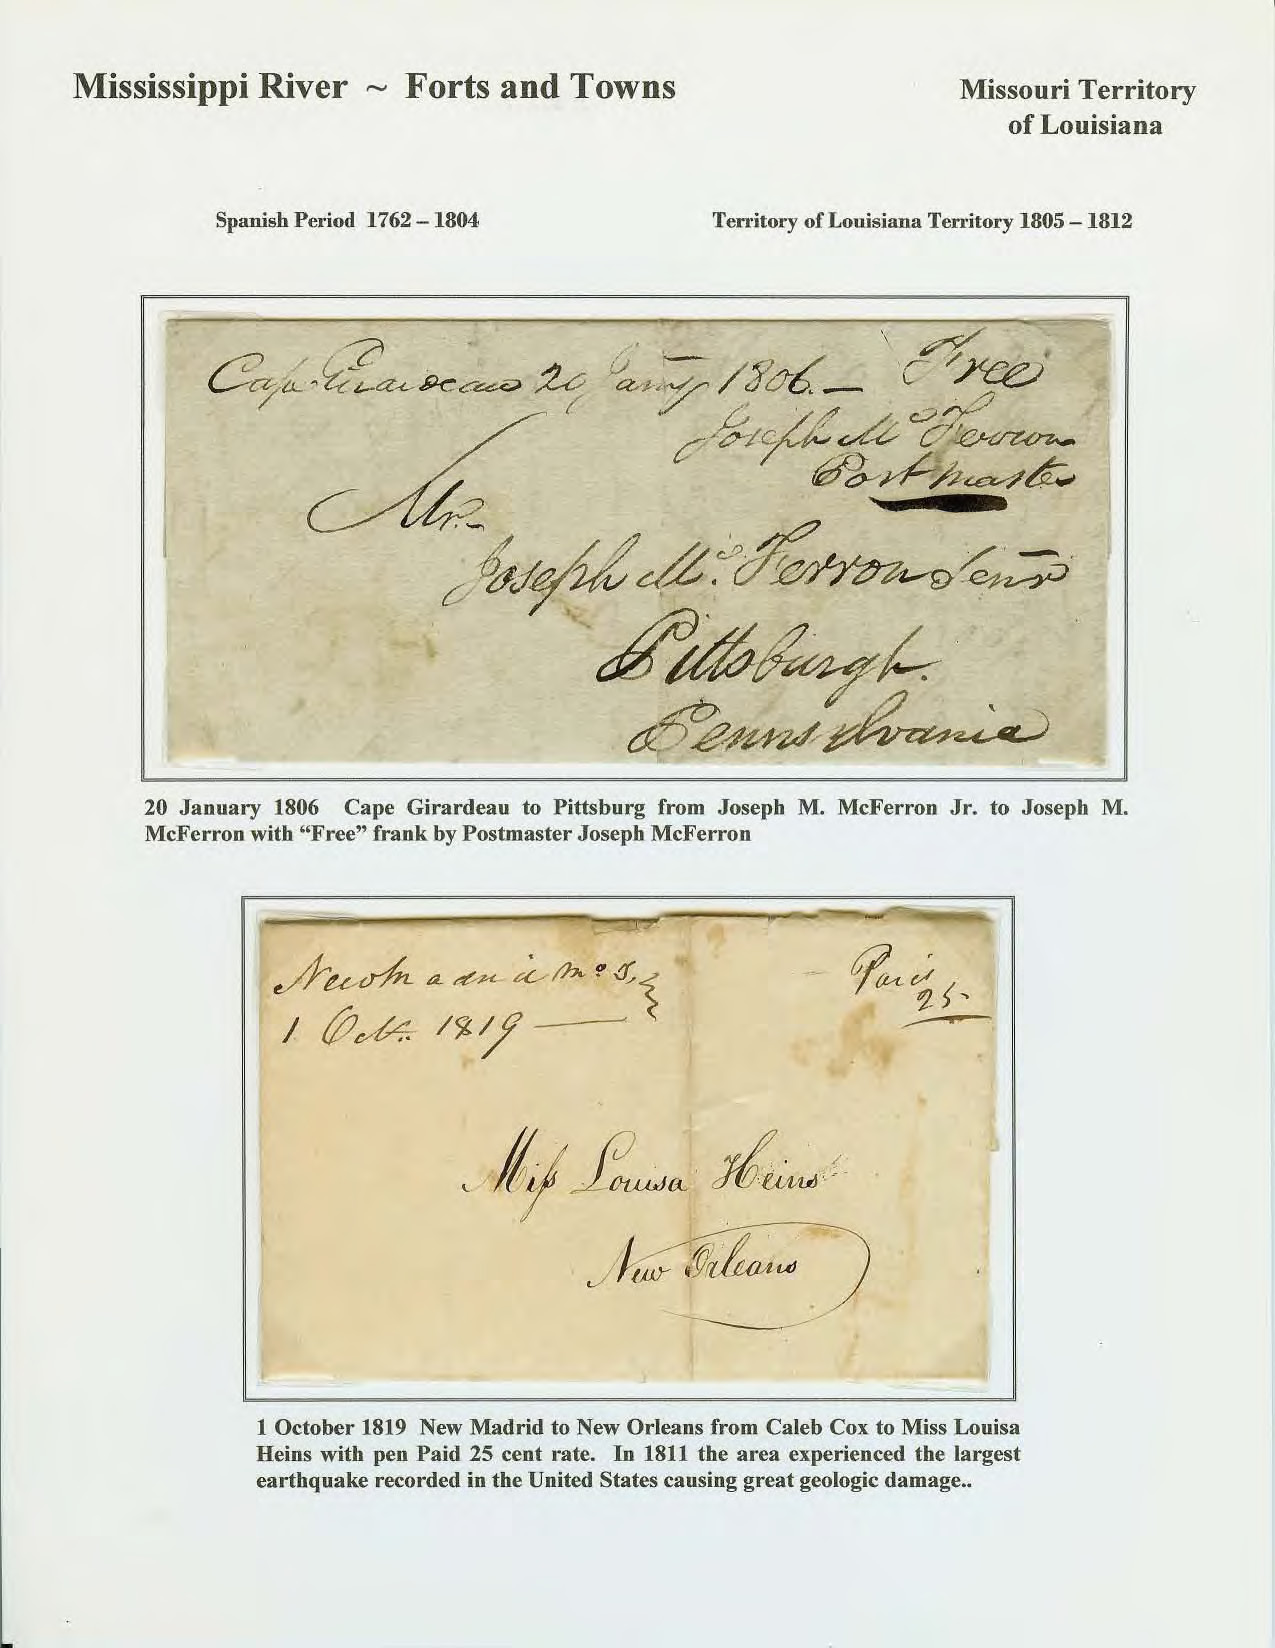 Mississippi River ~ Forts and Towns
Missouri Territory
of Louisiana
Spanish Period 1762 – 1804
Territory of Louisiana Territory 1805 – 1812
Cape Girardeau 20 Jany 1806. — Free
Joseph Mc Ferron
Postmaster
Mr.
Joseph Mc. Ferron Senr
Pittsburgh.
Pennsylvania
20 January 1806 Cape Girardeau to Pittsburg from Joseph M. McFerron Jr. to Joseph M.
McFerron with “Free” frank by Postmaster Joseph McFerron
New Madrid Mo T,
1 Oct.. 1819 —
Paid
25
Miss Louisa Heins
New Orleans
1 October 1819 New Madrid to New Orleans from Caleb Cox to Miss Louisa
Heins with pen Paid 25 cent rate. In 1811 the area experienced the largest
earthquake recorded in the United States causing great geologic damage..